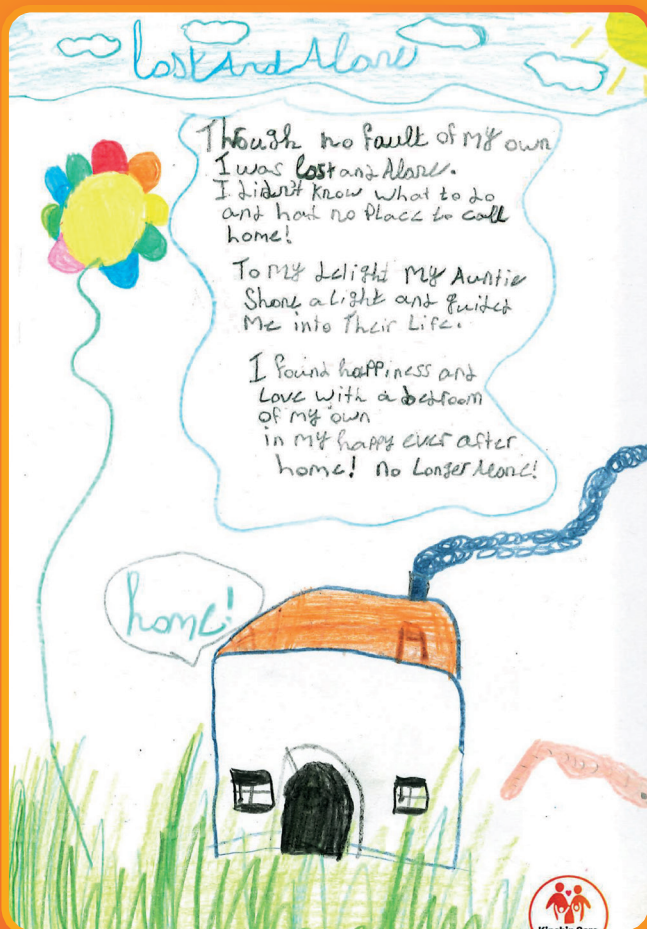 Lost And Alone
Though no fault of my own
I was lost and Alone.
I didn't know what to do
and had no Place to call
home!
To my delight my Auntie
Shone a light and guided
Me into Their Life.
I found happiness and
Love with a bedroom
of my own
in my happy ever after
home! no Longer Alone!
home!
Kinship Care